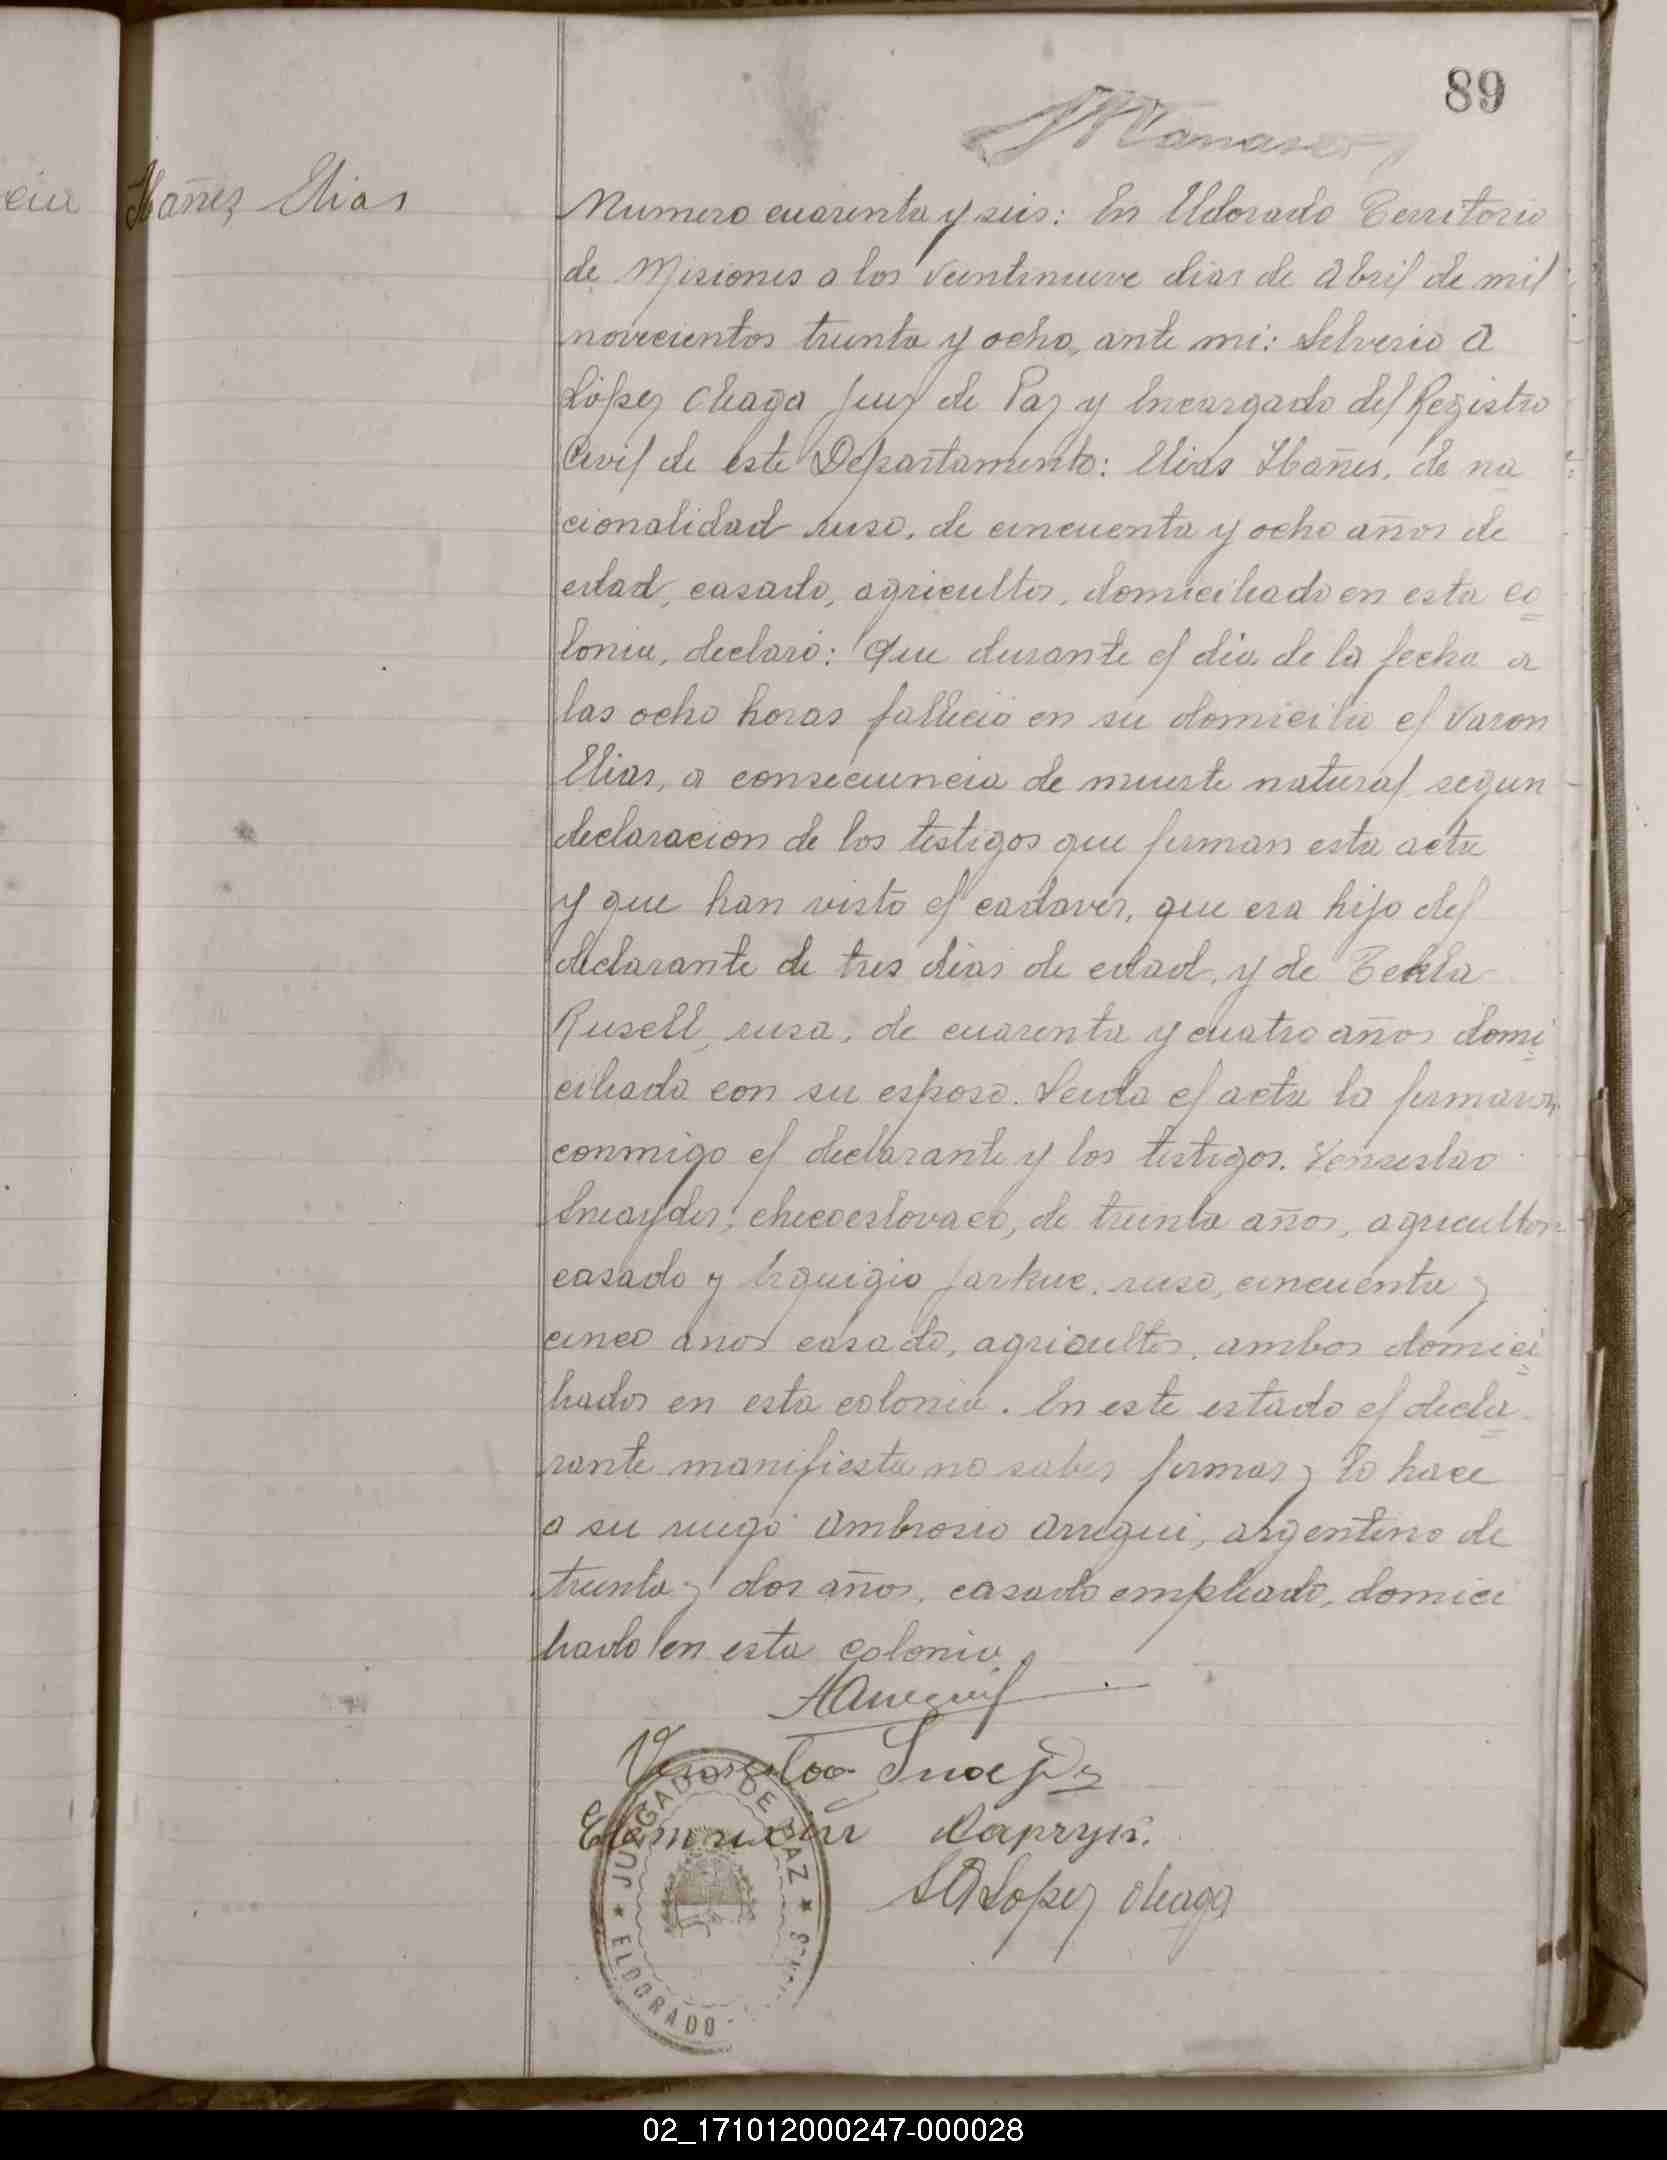 89
Ibañez Elias
Numero cuarenta y seis: En Eldorado Territorio
de Misiones a los veintinueve dias de Abril de mil
novecientos treinta y ocho, ante mi: Silverio A
López Cheaga Juez de Paz y Encargado del Registro
Civil de este Departamento: Elias Ibañes, de na
cionalidad ruso, de cincuenta y ocho años de
edad, casado, agricultor, domiciliado en esta co
lonia, declaró: Que durante el dia de la fecha a
las ocho horas falleció en su domicilio el varon
Elias, a consecuencia de muerte natural segun
declaracion de los testigos que firman esta acta
y que han visto el cadaver, que era hijo del
declarante de tres dias de edad, y de Tekla
Rusell, rusa, de cuarenta y cuatro años domi
ciliada con su esposo. Leida el acta la firmaron
conmigo el declarante y los testigos. Venseslao
Sneayder, checoeslovaco, de treinta años, agricultor
casado y Jarkue, ruso, cincuenta y
cinco anos casado, agricultor, ambos domici
liados en esta colonia. En este estado el decla
rante manifiesta no saber firmar y lo hace
a su ruego Ambrosio Arregui, argentino de
treinta y dos años, casado empleado, domici
liado en esta colonia.
AArregui
SALopez Cheaga
JUZGADO DE PAZ
ELDORADO
02_171012000247-000028